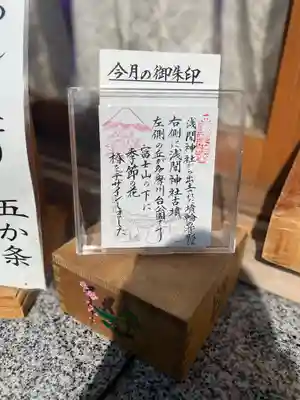 今月の御朱印
浅間神社から出土した埴輪
右側に浅間神社古墳
左側の丘が多摩川台公園です
富士山の下に
季節の花
梅をデザインしました
五か条